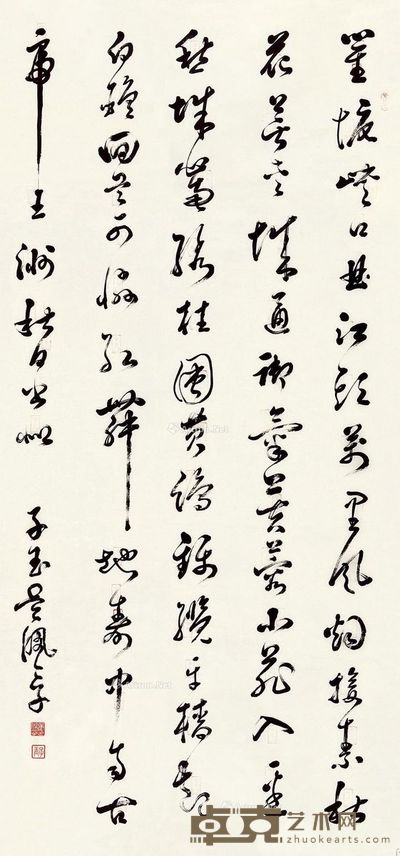 瞿塘峽口曲江頭萬里風煙接素秋
花萼夾城通御氣芙蓉小苑入邊
愁珠簾繡柱圍黃鵠錦纜牙檣起
白鷗回首可憐歌舞地秦中自古
帝王洲 秋日書 子玉吳佩孚
卓克艺术网
zhuokearts.com